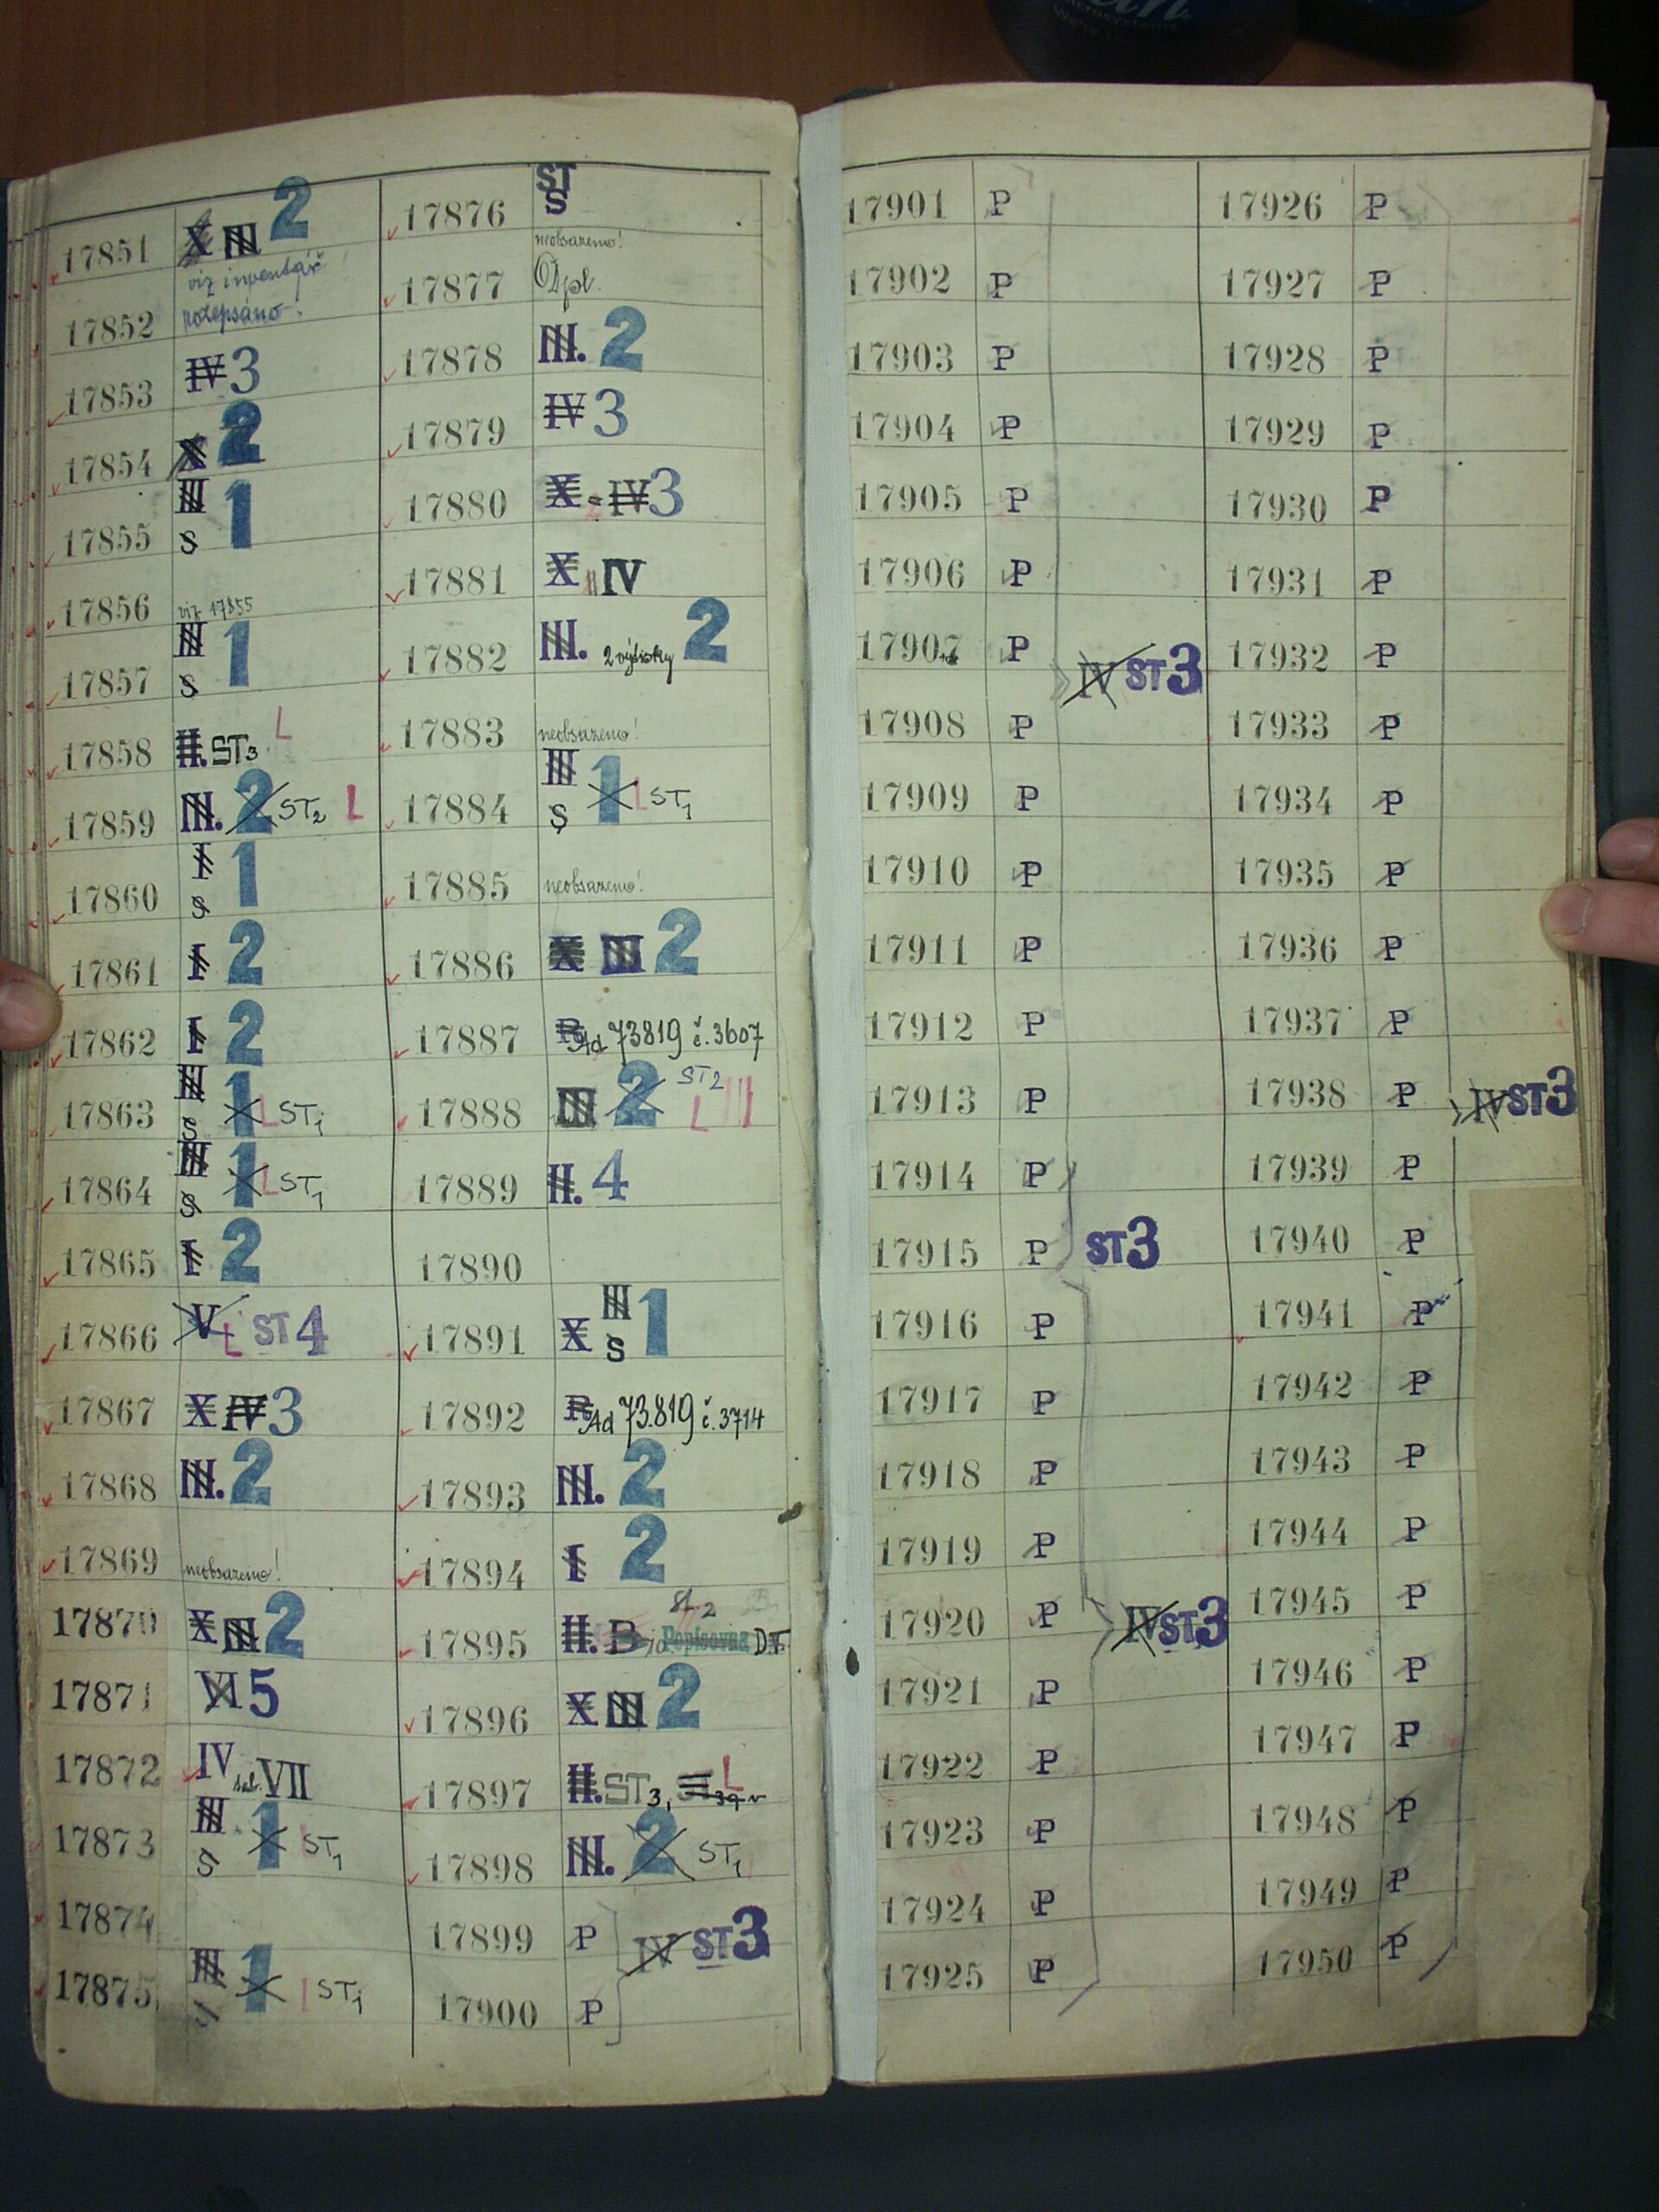 17851 X III 2
viz inventář
17852 rozepsáno!
17853 IV 3
17854 X 2
17855 III S 1
17856 viz 17855
17857 III S 1
17858 II. ST3 L
17859 III. 2 ST2 L
17860 I S 1
17861 I 2
17862 I 2
17863 III S 1 L ST1
17864 III S 1 L ST1
17865 I 2
17866 V L ST 4
17867 X IV 3
17868 III. 2
17869 neobsazeno!
17870 X III 2
17871 VI 5
17872 IV VII
17873 III S 1 ST1
17874
17875 III S 1 ST1
17876 ST S
17877 neobsazeno! ODpl.
17878 III. 2
17879 IV 3
17880 X = IV 3
17881 X IV
17882 III. 2 výtisky 2
17883 neobsazeno!
17884 III S 1 L ST1
17885 neobsazeno!
17886 X III 2
17887 R Ad 73819 č. 3607
17888 III 2 ST2 L
17889 II. 4
17890
17891 X III S 1
17892 R Ad 73.819 č. 3714
17893 III. 2
17894 I 2
17895 II. B Popisovna D.F.
17896 X III 2
17897 II. ST3, L
17898 III. 2 ST1
17899 P IV ST3
17900 P
17901 P
17902 P
17903 P
17904 P
17905 P
17906 P
17907 P
IV ST3
17908 P
17909 P
17910 P
17911 P
17912 P
17913 P
17914 P
17915 P ST3
17916 P
17917 P
17918 P
17919 P
17920 P IV ST3
17921 P
17922 P
17923 P
17924 P
17925 P
17926 P
17927 P
17928 P
17929 P
17930 P
17931 P
17932 P
17933 P
17934 P
17935 P
17936 P
17937 P
17938 P IV ST3
17939 P
17940 P
17941 P
17942 P
17943 P
17944 P
17945 P
17946 P
17947 P
17948 P
17949 P
17950 P